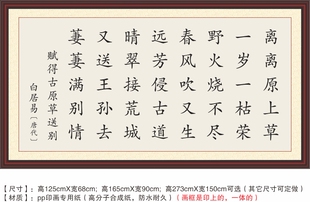 离离原上草
一岁一枯荣
野火烧不尽
春风吹又生
远芳侵古道
晴翠接荒城
又送王孙去
萋萋满别情
赋得古原草送别
白居易［唐代］
【尺寸】：高125cmX宽68cm；高165cmX宽90cm；高273cmX宽150cm可选（其它尺寸可定做）
【材质】：pp印画专用纸（高分子合成纸。防水耐久）（画框是印上的。一体的）